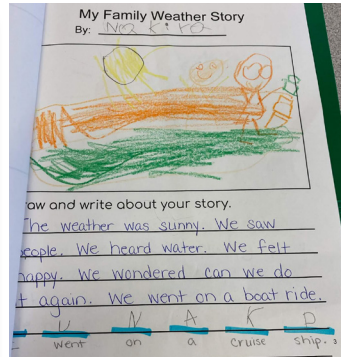 My Family Weather Story
By: Nea Kira
aw and write about your story.
he weather was sunny. We saw
eople. We heard water. We felt
happy. We wondered can we do
t again. We went on a boat ride.
U N A K D
went on a cruise ship. 3